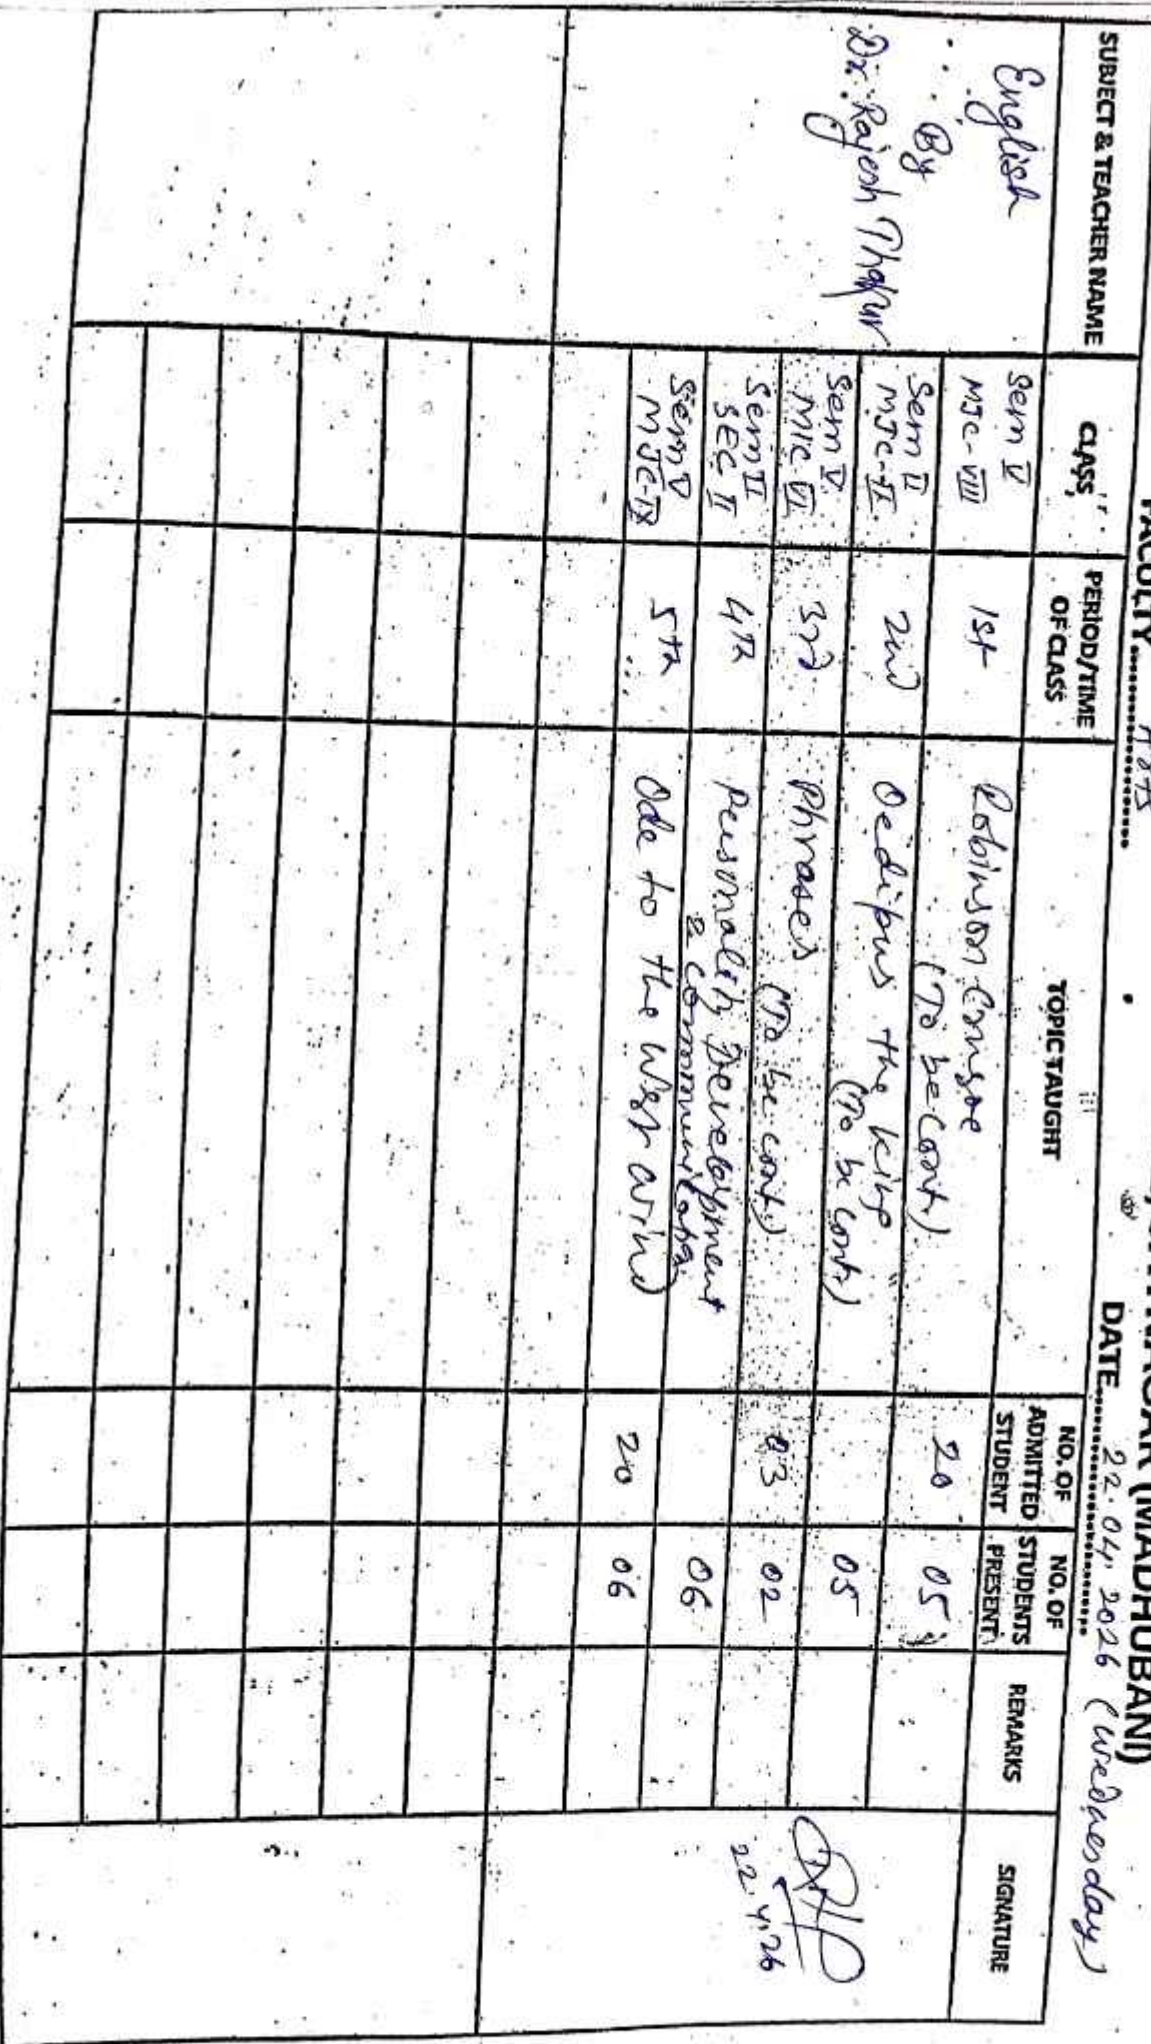 NAGAR (MADHUBANI)
FACULTY Arts DATE 22.04.2026 (Wednesday)
SUBJECT & TEACHER NAME CLASS PERIOD/TIME OF CLASS TOPIC TAUGHT NO. OF ADMITTED STUDENT NO. OF STUDENTS PRESENT REMARKS SIGNATURE
English
By
Dr. Rajesh
Sem V MJC-VIII 1st Robinson Crusoe (To be Cont.) 20 05
Sem II MJC-II 2nd Oedipus the King (To be Cont.) 05
Sem V MIC-VI 3rd Phrases (To be cont.) 03 02
Sem II SEC II 4th Personality Development & Communication 06
Sem V MJC-IX 5th Ode to the West Wind 20 06
22.4.26